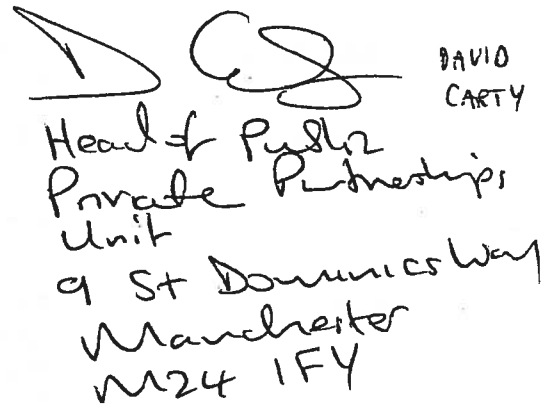 DAVID
CARTY
Head of Public
Private Partnerships
Unit
9 St Dominics Way
Manchester
M24 1FY